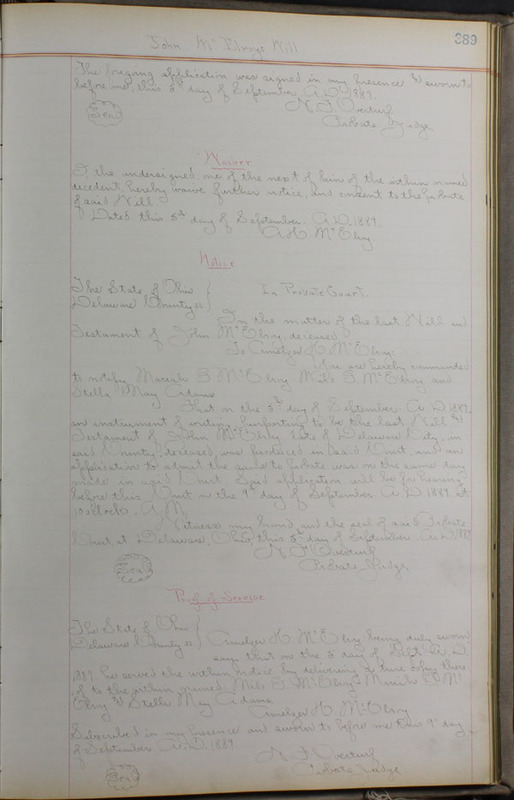 389
John Mc Elroys Will
The foregoing application was signed in my presence & sworn to
before me, this 5th day of September A.D. 1889.
Seal
Probate Judge
Waiver
I the undersigned, one of the next of kin of the within named
decedent, hereby waive further notice, and consent to the probate
of said Will.
Dated this 5th day of September. A.D. 1889.
A. H. McElroy.
Notice
The State of Ohio
In Probate Court.
Delaware County ss
In the matter of the last Will and
Testament of John McElroy, deceased.
To H. McElroy:
You are hereby commanded
to notify McElroy McElroy and
Stella May Adams
That on the 5th day of September A.D. 1889.
an instrument of writing purporting to be the last Will &
Testament of John McElroy, late of Delaware City, in
said County, deceased, was produced in said Court, and an
application to admit the same to Probate was on the same day
made in said Court. Said application will be for hearing
before this Court on the 9th day of September A.D. 1889 at
10 o'clock. A.M.
Witness my hand and the seal of said Probate
Court at Delaware, Ohio, this 5th day of September. A.D. 1889
Seal
Probate Judge
Proof of Service
The State of Ohio
Delaware County ss
H. McElroy being duly sworn
says that on the 5 day of Sept. A.D.
1889 he served the within notice by delivering a true copy there
of to the within named McElroy, Mc
Elroy & Stella May Adams.
H. McElroy
Subscribed in my presence and sworn to before me this 9th day
of September A.D. 1889
Seal
Probate Judge